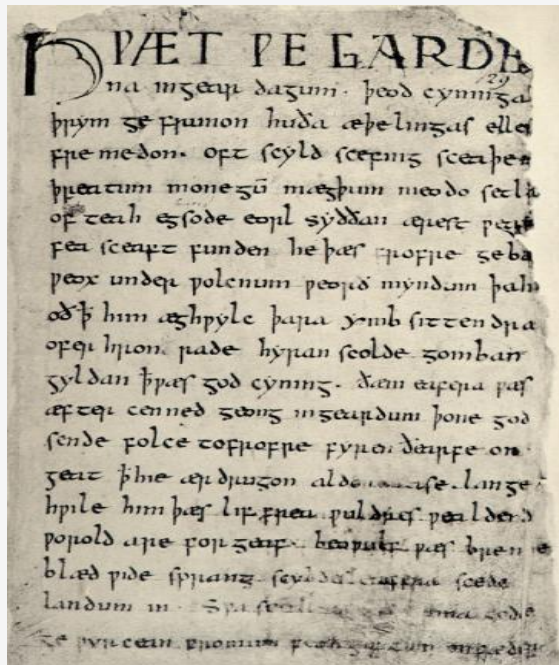 HǷÆT ǷE GARDE
129
na ingear dagum. þeod cyninga
þrym ge frunon huða æþelingas elle
fremedon. oft scyld scefing sceaþe
þreatum monegū mægþum meodo setla
of teah egsode eorl syððan ærest
fea sceaft funden he þæs frofre geba
ƿeox under ƿolcnum ƿeorð myndum þah
oð ꝥ him æghƿylc þara ymb sittendra
ofer hron rade hyran scolde gomban
gyldan ꝥ ƿæs god cyning. ðæm eafera ƿæs
æfter cenned geong ingeardum þone god
sende folce tofrofre fyren ðearfe on
geat ꝥ hie ær drugon lange
hƿile him þæs lif frea ƿuldres ƿealdend
ƿorold are for geaf. beoƿulf ƿæs breme
blæd ƿide sprang scyldes eafera scede
landum in. Sƿa gode
ge ƿyrcean fromum feoh giftum